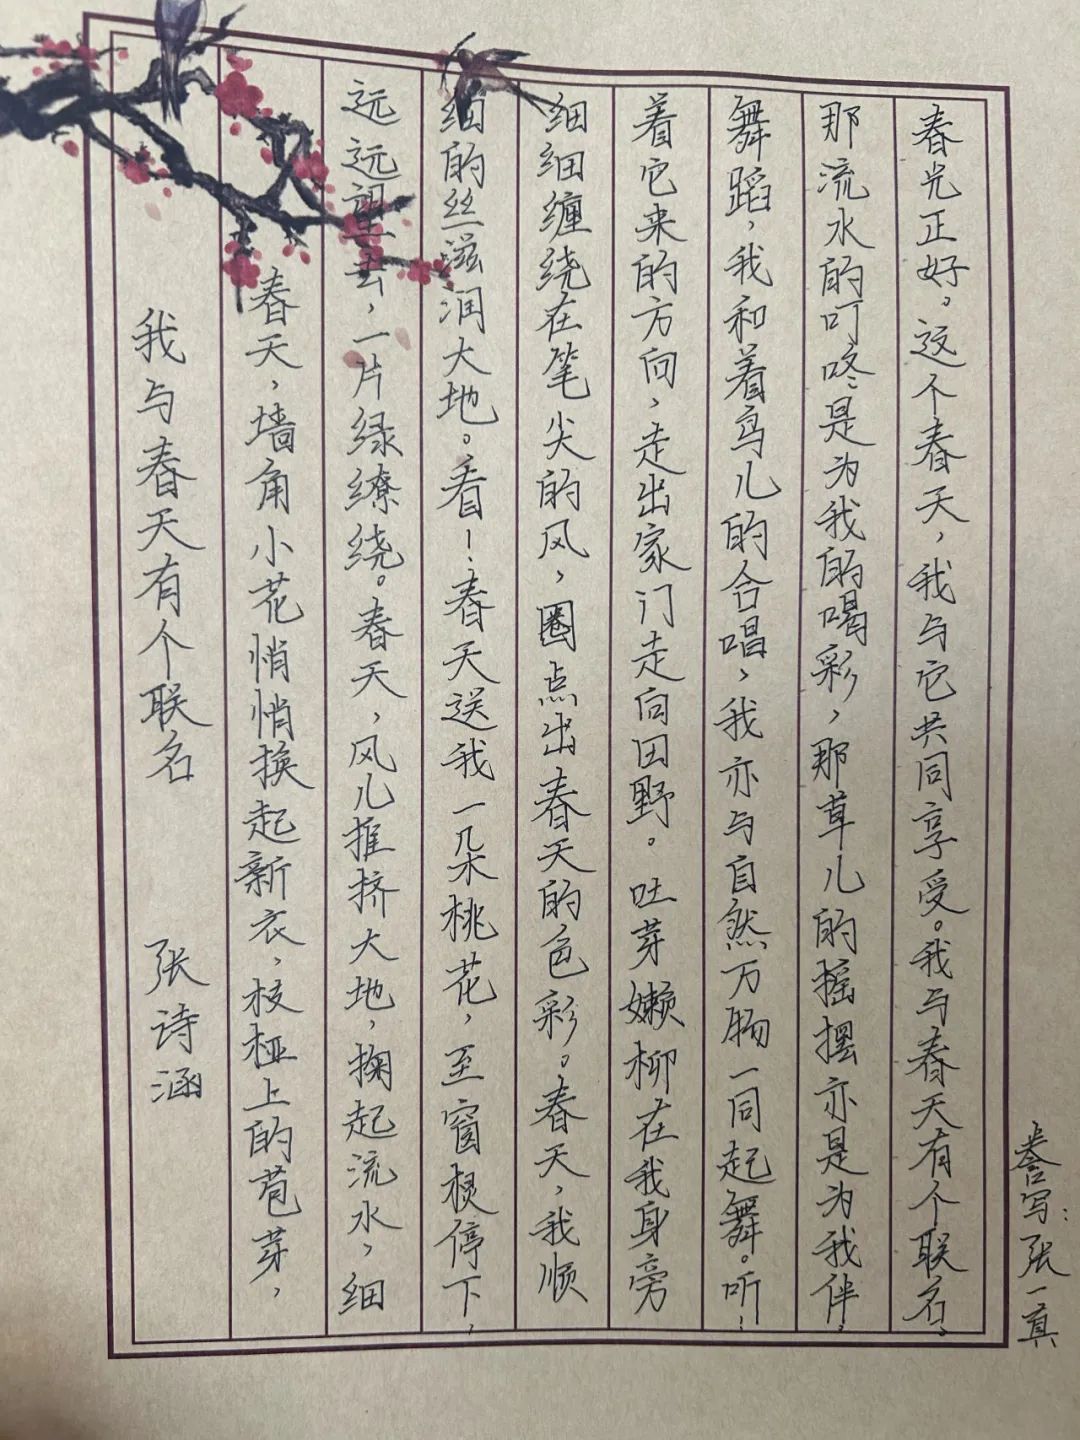 我与春天有个联名 张诗涵
春天，墙角小花悄悄换起新衣，枝桠上的苞芽，
远远望去，一片绿缭绕。春天，风儿推挤大地，掬起流水，细
细的丝滋润大地。看！春天送我一朵桃花，至窗棂停下，
细细缠绕在笔尖的风，圈点出春天的色彩。春天，我顺
着它来的方向，走出家门走向田野。吐芽嫩柳在我身旁
舞蹈，我和着鸟儿的合唱，我亦与自然万物一同起舞。听！
那流水的叮咚是为我的喝彩，那草儿的摇摆亦是为我伴，
春光正好。这个春天，我与它共同享受。我与春天有个联名。
誊写：张一真